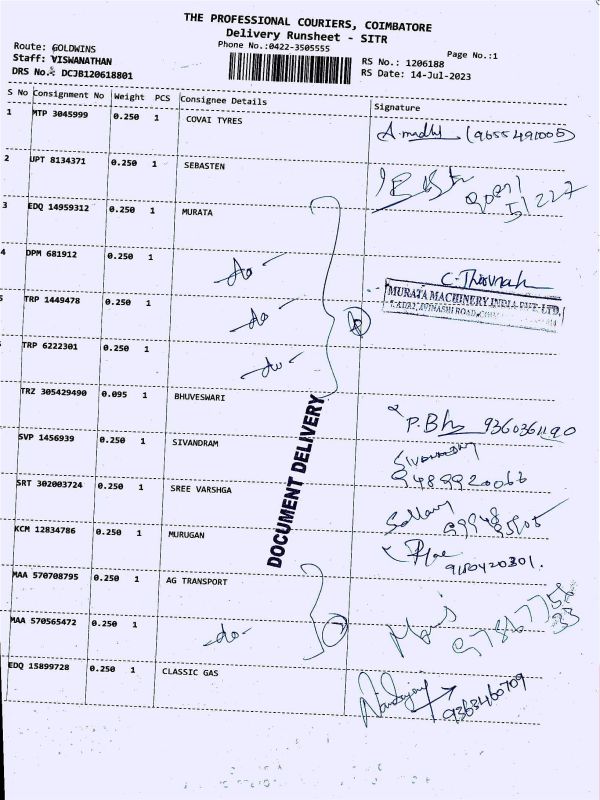 THE PROFESSIONAL COURIERS, COIMBATORE
Delivery Runsheet - SITR
Phone No.:0422-3505555
Page No.:1
Route: GOLDWINS
Staff: VISWANATHAN
DRS No.: DCJB120618801
RS No.: 1206188
RS Date: 14-Jul-2023
S No Consignment No Weight PCS Consignee Details Signature
1 MTP 3045999 0.250 1 COVAI TYRES A.madhi (9655491005)
2 UPT 8134371 0.250 1 SEBASTEN
51227
3 EDQ 14959312 0.250 1 MURATA
4 DPM 681912 0.250 1 -do-
MURATA MACHINERY INDIA PVT. LTD.
AVINASHI ROAD,
5 TRP 1449478 0.250 1 -do-
TRP 6222301 0.250 1 -do-
TRZ 305429490 0.095 1 BHUVESWARI P.Bh 9360361190
SVP 1456939 0.250 1 SIVANDRAM
9489920063
SRT 302003724 0.250 1 SREE VARSHGA
KCM 12834786 0.250 1 MURUGAN
9180420301.
DOCUMENT DELIVERY
MAA 570708795 0.250 1 AG TRANSPORT
MAA 570565472 0.250 1 -do- Mani
33
EDQ 15899728 0.250 1 CLASSIC GAS 9363460709